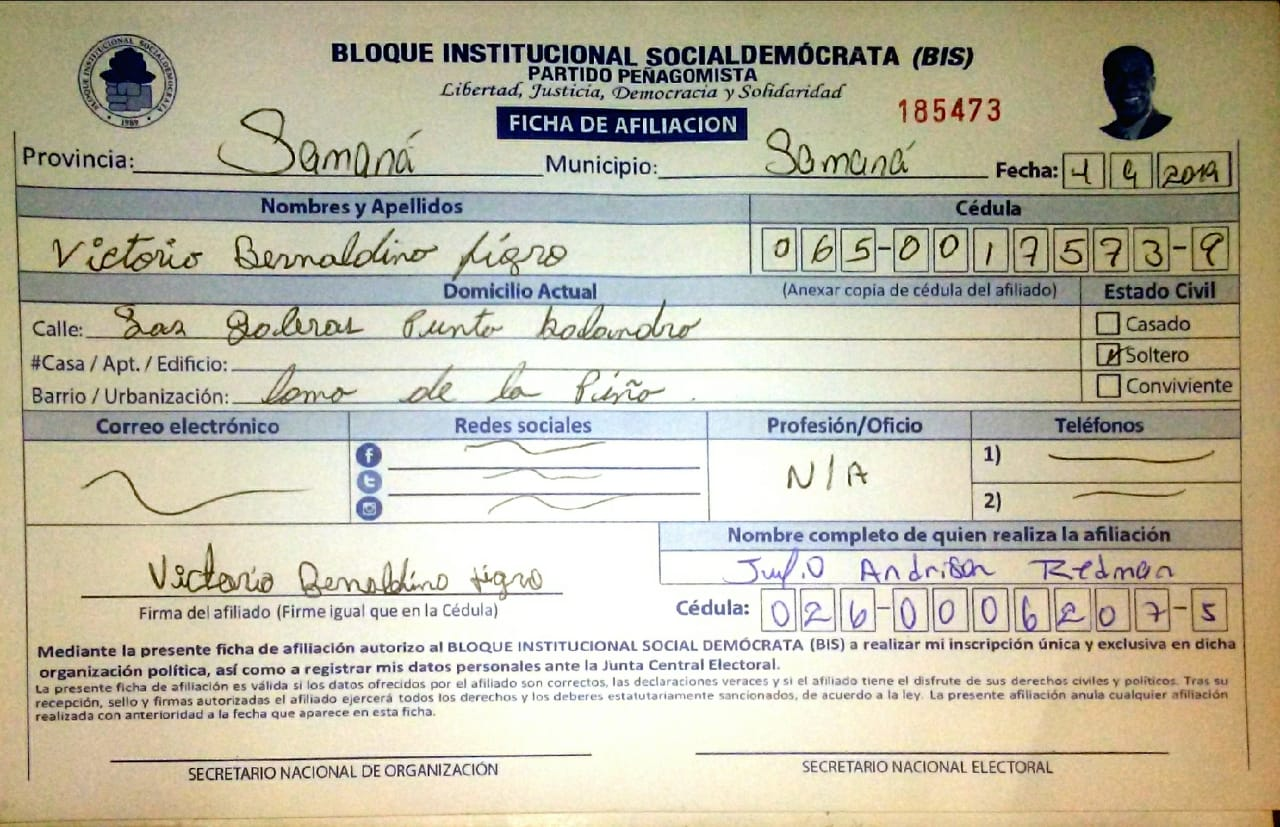 BLOQUE INSTITUCIONAL SOCIALDEMÓCRATA (BIS)
PARTIDO PEÑAGOMISTA
Libertad, Justicia, Democracia y Solidaridad
BLOQUE INSTITUCIONAL SOCIALDEMÓCRATA
1989
185473
FICHA DE AFILIACION
Provincia: Samaná Municipio: Samaná Fecha: 4 9 2019
Nombres y Apellidos Cédula
Victorio Bernaldino Jigro 065-0017573-9
Domicilio Actual (Anexar copia de cédula del afiliado) Estado Civil
Calle: Las Galeras Punta Balandro Casado
#Casa / Apt. / Edificio: Soltero
Barrio / Urbanización: loma de la Piña Conviviente
Correo electrónico Redes sociales Profesión/Oficio Teléfonos
N/A
1)
2)
Nombre completo de quien realiza la afiliación
Julio Andrison Redman
Victorio Bernaldino Jigro
Firma del afiliado (Firme igual que en la Cédula) Cédula: 026-0006207-5
Mediante la presente ficha de afiliación autorizo al BLOQUE INSTITUCIONAL SOCIAL DEMÓCRATA (BIS) a realizar mi inscripción única y exclusiva en dicha
organización política, así como a registrar mis datos personales ante la Junta Central Electoral.
La presente ficha de afiliación es válida si los datos ofrecidos por el afiliado son correctos, las declaraciones veraces y si el afiliado tiene el disfrute de sus derechos civiles y políticos. Tras su
recepción, sello y firmas autorizadas el afiliado ejercerá todos los derechos y los deberes estatutariamente sancionados, de acuerdo a la ley. La presente afiliación anula cualquier afiliación
realizada con anterioridad a la fecha que aparece en esta ficha.
SECRETARIO NACIONAL DE ORGANIZACIÓN SECRETARIO NACIONAL ELECTORAL